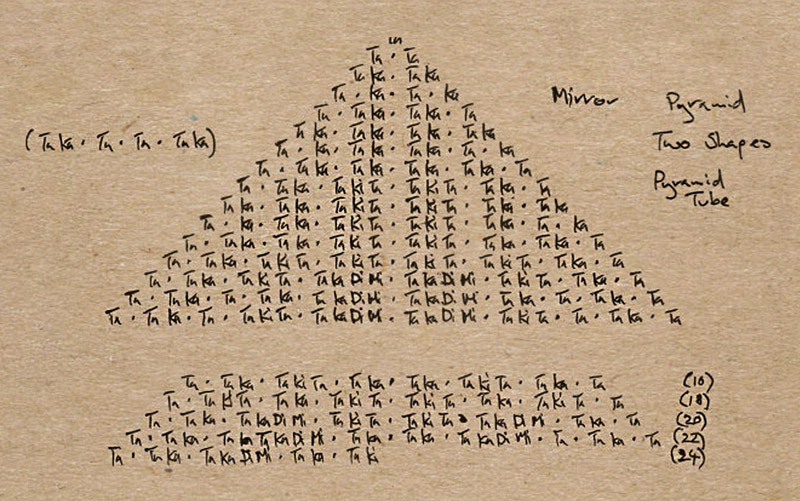 Ta · Ta
Ta ka · Ta ka
Ta · ka · Ta · ka
Mirror
Pyramid
Ta · Ka · Ka · Ta
Ta ka · Ka · Ta ka · Ta ka
(Ta ka · Ta · Ta · Ta ka)
Two Shapes
Ta · Ta ka · Ta ka · ka
Ta · Ta ka · Ta ka · Ta
Pyramid
Tube
Ta · Ta ka · Ta Ki Ta · Ta Ki Ta · Ta ka · Ta
Ta ka · Ta ka · Ta Ki Ta · Ta Ki Ta · Ta ka · Ta ka
Ta · Ka · Ta ka · Ta Ki Ta · Ta Ki Ta · Ta ka · Ta · ka
Ta · Ta ka · Ta ka · Ta Ki Ta · Ta Ki Ta · Ta ka · Ta ka · Ta
Ta · Ta ka · Ta Ki Ta · Ta Ki Ta · Ta Ki Ta · Ta Ki Ta · Ta ka · Ta
Ta · Ta ka · Ta Ki Ta · Ta ka Di Mi · Ta ka Di Mi · Ta Ki Ta · Ta ka · Ta
Ta · Ta ka · Ta · Ta ka · Ta ka Di Mi · Ta ka Di Mi · Ta ka · Ta · Ta ka · Ta
Ta · Ta ka · Ta · Ta Ki Ta · Ta ka Di Mi · Ta ka Di Mi · Ta Ki Ta · Ta · Ta ka · Ta
Ta · Ta ka · Ta Ki Ta · Ta ka · Ta ka · Ta Ki Ta · Ta ka · Ta (16)
Ta · Ta Ki Ta · Ta ka · Ta Ki Ta · Ta Ki Ta · Ta ka · Ta Ki Ta · Ta (18)
Ta · Ta ka · Ta ka Di Mi · Ta Ki Ta · Ta Ki Ta · Ta ka Di Mi · Ta ka · Ta (20)
Ta · Ta ka · Ta · Ta ka Di Mi · Ta ka · Ta ka · Ta ka Di Mi · Ta · Ta ka · Ta (22)
Ta · Ta ka · Ta ka Di Mi · Ta ka · Ta Ki (24)